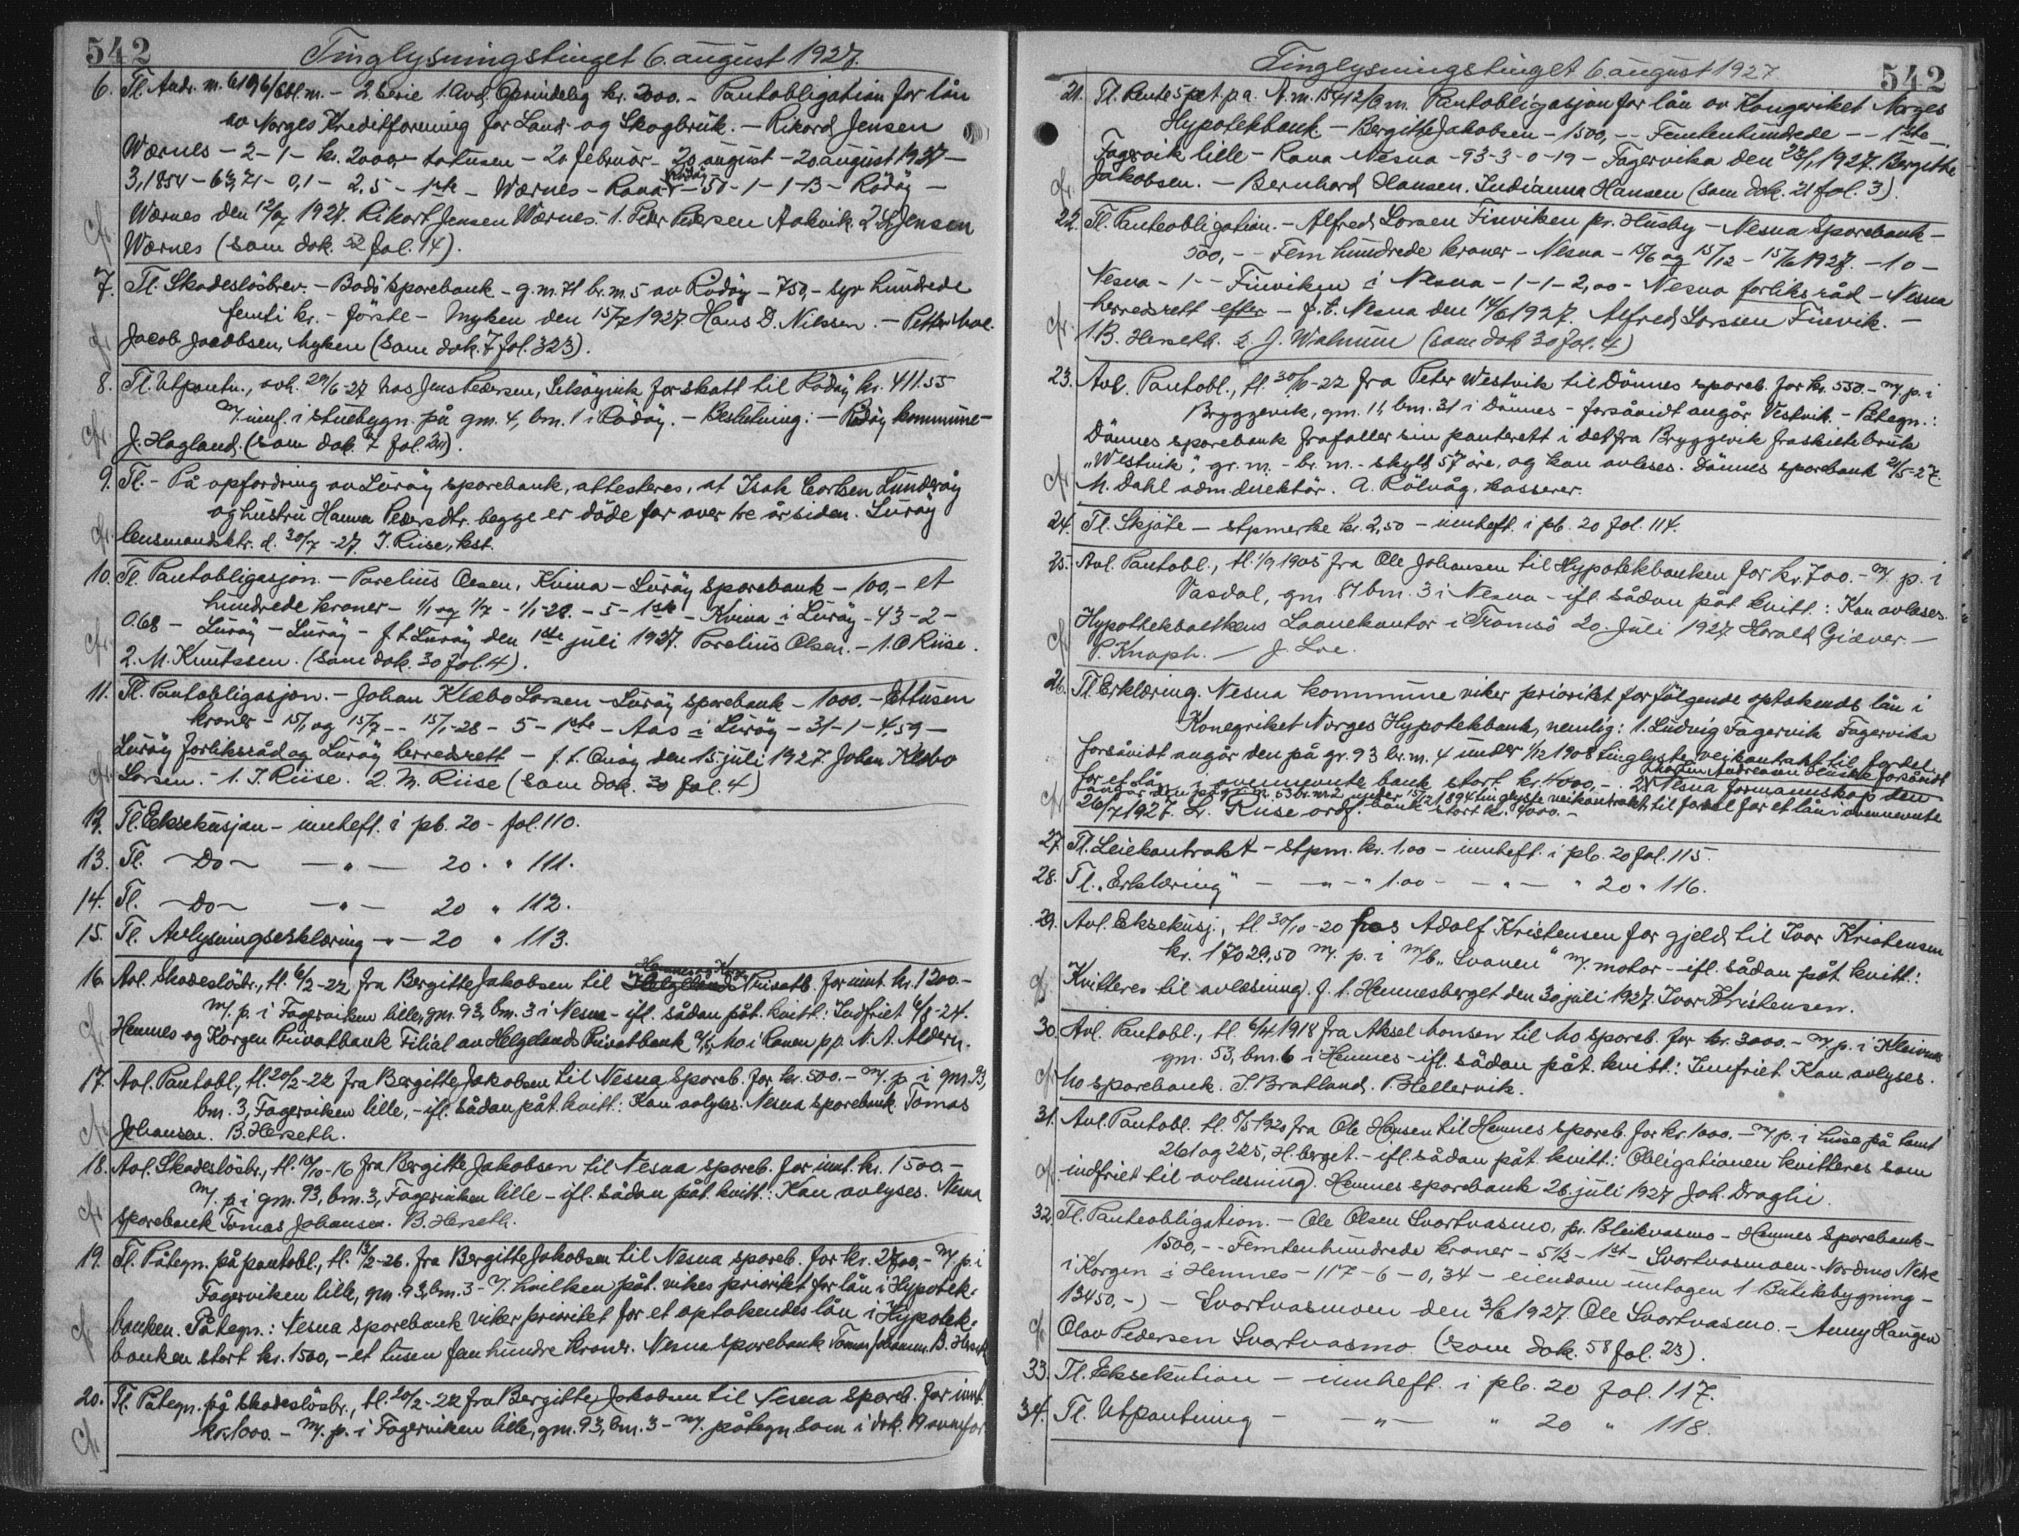 542
Tinglysningstinget 6. august 1927.
6. Tl. Andr. m. - 2 Serie 1. Avd. Oprindelig kr. 2000. - Pantobligation for lån
av Norges Kreditforening for Land- og Skogbruk. - Rikard Jensen
Wærnes - 2 - 1 - kr. 2000,- totusen - 20 februar - 20 august - 20 august 1927 -
3,1854 - - 0,1 - 2,5 - 1ste - Wærnes - Rana Rödöy - 50 - 1 - 1 - B - Rödöy -
Wærnes den 12/7 1927. Rikart Jensen Wærnes. - 1. Peter Pedersen Aakvik. 2. Jensen
Wærnes (som dok. 22 fol. 14).
7. Tl. Skadeslösbrev. - Bodö sparebank - g.m. 71 br.m. 5 av Rödöy - 750,- syv hundrede
femti kr. - förste - Myken den 15/7 1927. Hans D. Nilssen. - Petter
Jacob Jacobsen, Myken (som dok. 7 fol. 323).
8. Tl. Utpantn., avh. 29/6-27 hos Jens Pedersen, Selsöyvik for skatt til Rödöy kr. 411.55
m/ innf. i stuebygn. på gm. 4, bm. 1 i Rödöy. - Beslutning: - Rödöy kommune -
J. Hagland. (som dok. 7 fol. 20).
9. Tl. - På opfordring av Luröy sparebank, attesteres, at Isak Carlsen Lunderöy
og hustru Hanna Pedersdtr. begge er döde for over tre år siden. Luröy
lensmandsktr. d. 30/7-27 J. Riise, kst.
10. Tl. Pantobligasjon. - Parelius Olsen, Kvina - Luröy sparebank - 100,- et
hundrede kroner - 1/1 og 1/7 - 1/1-28. - 5 - 1ste - Kvina i Luröy - 43 - 2 -
0.68 - Luröy - Luröy - f.t. Luröy den 1ste juli 1927. Parelius Olsen. - 1. O Riise.
2. M. Knutssen. (som dok. 30 fol. 4).
11. Tl. Pantobligasjon. - Johan Klæbo Larsen - Luröy sparebank - 1000. - Ettusen
kroner - 15/1 og 15/7 - - 15/1-28 - 5 - 1ste - Aas i Luröy - 31 - 1 - 4.59 -
Luröy forliksråd og Luröy herredsrett - f.t. Onöy den 15. juli 1927 Johan Klæbo
Larsen. - 1. J. Riise. 2. M. Riise (som dok. 30 fol. 4)
12. Tl. Eksekusjon - innheft. i pb. 20 - fol. 110.
13. Tl. - Do - - " - 20 " " 111.
14. Tl. - Do - - " - 20 " 112.
15. Tl. Avlysningserklæring - " - 20 " 113.
16. Avl. Skadeslösbr., tl. 6/2-22 fra Bergitte Jakobsen til Hemnes og Korgen Privatb. for innt. kr. 1200.-
m/ p. i Fagerviken lille, gm. 93, bm. 3 i Nesna - ifl. sådan påt. kvitt.: Indfriet 6/8-24.
Hemnes og Korgen Privatbank Filial av Helgelands Privatbank A/S, Mo i Ranen pp. N. A. Aldern.
17. Avl. Pantobl., tl. 20/2-22 fra Bergitte Jakobsen til Nesna Spareb. for kr. 500. - m/ p. i gm. 93,
bm. 3, Fagerviken lille, - ifl. sådan påt. kvitt.: Kan avlyses. Nesna sparebank Tomas
Johansen. B. Herseth.
18. Avl. Skadeslösbr., tl. 10/10-16 fra Bergitte Jakobsen til Nesna spareb. for innt. kr. 1500. -
m/ p. i gm. 93, bm. 3, Fagerviken lille - ifl. sådan påt. kvitt.: Kan avlyses. Nesna
sparebank Tomas Johansen. B. Herseth.
19. Tl. Påtegn. på pantobl., tl. 13/2-26. fra Bergitte Jakobsen til Nesna spareb. for kr. 2700,- m/ p. i
Fagerviken lille, gm. 93, bm. 3 - m/ hvilken påt. vikes prioritet for lån i Hypotek-
banken. Påtegn.: Nesna sparebank viker prioritet for et optakendes lån i Hypotek-
banken stort kr. 1500,- et tusen fem hundre kroner. Nesna sparebank Tomas Johansen. B. Herseth
20. Tl. Påtegn. på skadeslösbr., tl. 20/2-22 fra Bergitte Jakobsen til Nesna spareb. for innt.
kr. 1000. - m/ p. i Fagerviken lille, gm. 93, bm. 3 - m/ påtegn. som i dok. 19 ovenfor
542
Tinglysningstinget 6 august 1927.
21. Tl. Rente 5 pct. p.a. Pantobligasjon for lån av Kongeriket Norges
Hypotekbank - Bergitte Jakobsen - 1500, - - Femtenhundrede - - 1ste -
Fagervik lille - Rana Nesna - 93 - 3 - 0 - 19 - Fagervika den 23/1 1927. Bergitte
Jakobsen. - Bernhard Hansen. Indianna Hansen (som dok. 21 fol. 3).
22. Tl. Panteobligation. - Alfred Larsen Finviken pr. Husby - Nesna Sparebank -
500, - - Fem hundrede kroner - Nesna - 15/6 og 15/12 - 15/6 1927. - 10 -
Nesna - 1 - - Finviken i Nesna - 1 - 1 - 2,00 - Nesna forliksråd - Nesna
herredsrett efter - f.t. Nesna den 14/6 1927. Alfred Larsen Finvik. -
1. B. Herseth. 2. J. Walnum (som dok 30 fol. 4)
23. Avl. Pantobl., tl. 30/10-22 fra Peter Westvik til Dönnes spareb. for kr. 550. - m/ p. i
Bryggevik, gm. 11, bm. 31 i Dönnes - forsåvidt angår Vestvik - Påtegn.:
Dönnes sparebank frafaller sin panterett i det fra Bryggevik fraskilte bruk
„Westvik", gr. m. - br. m. - skyld 57 öre, og kan avleses. Dönnes sparebank 21/5-27.
M. Dahl adm. direktör. A. Rölvåg, kasserer.
24. Tl. Skjöte - stpmerke kr. 2,50 - innheft. i pb. 20 fol. 114.
25. Avl. Pantobl., tl. 1/9 1905 fra Ole Johansen til Hypotekbanken for kr. 700. - m/ p. i
Vasdal, gm. 87 bm. 3 i Nesna - ifl. sådan påt. kvitt.: Kan avleses.
Hypothekbankens Laanekantor i Tromsö 20. Juli 1927 Harald Giæver. -
P. Knoph. - J. Lre.
26. Tl. Erklæring. Nesna kommune viker prioritet for fölgende optakends lån i
Konegriket Norges Hypotekbank, nemlig: 1. Ludvig Fagervik Fagervika
forsåvidt angår den på gr. 93 br. m. 4 under 1/12 1908 tinglyste veikontrakt til fordel
for et lån i ovennevnte bank stort kr. 4000. - 2. Nesna formannskap den
Martin Andreassen Husby forsåvidt
angår den på gr. m. 53 br. m 2 under 15/2 1894 tinglyste veikontrakt til fordel for et lån i ovennevnte
26/7 1927. L. Riise ordf. bank stort kr. 9000. -
27. Tl. Leiekontrakt - stpm. kr. 1.00 - innheft. i pb. 20 fol. 115.
28. Tl. „Erklæring" - - " - " 1.00 - - " - " 20 " 116.
29. Avl. Eksekusj., tl. 30/10-20 hos Adolf Kristensen for gjeld til Ivar Kristensen
kr. 17029,50 m/ p. i m/b „Svanen" m/ motor - ifl. sådan påt. kvitt:
Kvitteres til avlæsning. f. t. Hemnesberget den 30 juli 1927. Ivar Kristensen.
30. Avl. Pantobl., tl. 6/4 1918 fra Aksel Monsen til Mo spareb. for kr. 3000. - m/ p. i Kleivnes
gm. 53, bm. 6 i Hemnes - ifl. sådan påt. kvitt.: Innfriet. Kan avlyses.
Mo sparebank. J. Bratland. B. Hellervik.
31. Avl. Pantobl. tl. 5/5 1920 fra Ole Hansen til Hemnes spareb. for kr. 1000. - m/ p. i huse på tomt
261 og 225, H.berget. - ifl. sådan påt. kvitt.: Obligationen kvitteres som
indfriet til avlæsning. Hemnes sparebank 26. juli 1927 Joh. Draghi.
32. Tl. Panteobligation. - Ole Olsen Svartvasmo, pr. Bleikvasmo - Hemnes Sparebank -
1500, - - Femtenhundrede kroner - 5 1/2 - 1ste - Svartvasmoen - Nordmo Nedre
i Korgen i Hemnes - 117 - 6 - 0,34 - eiendom inntagen 1 Butikbygning -
13450,-) - Svartvasmoen den 3/6 1927. Ole Svartvasmo. - Anny Haugen
Olav Pedersen Svartvasmo (som dok. 58 fol. 23).
33. Tl. Eksekution - innheft. i pb. 20 fol. 117.
34. Tl. Utpantning - - " - " 20 " 118.